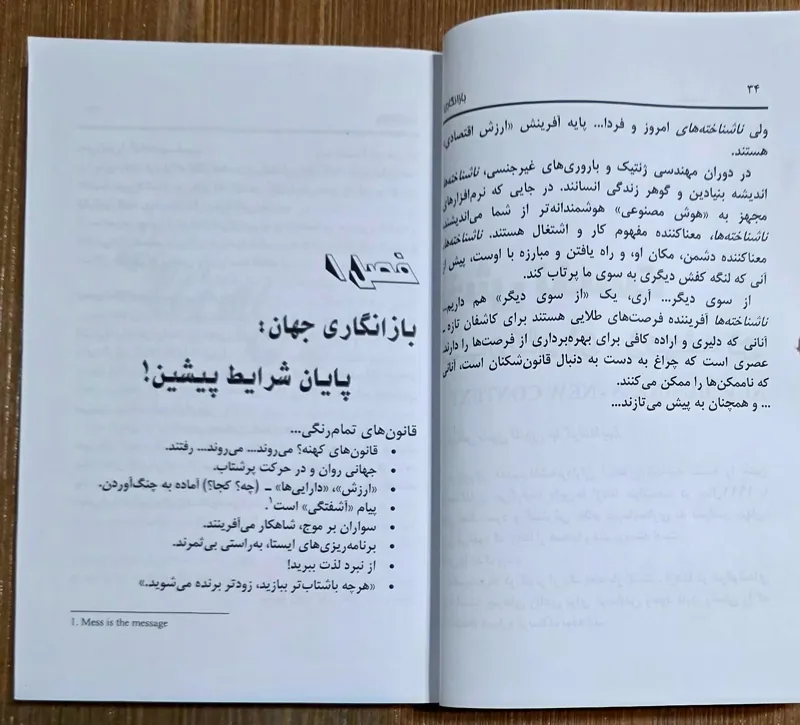 ۳۴
بازانگاری
ولی ناشناخته‌های امروز و فردا... پایه آفرینش «ارزش اقتصادی»
هستند.
در دوران مهندسی ژنتیک و باروری‌های غیرجنسی، ناشناخته‌ها
اندیشه بنیادین و گوهر زندگی انسانند. در جایی که نرم‌افزارهای
مجهز به «هوش مصنوعی» هوشمندانه‌تر از شما می‌اندیشند،
ناشناخته‌ها، معناکننده مفهوم کار و اشتغال هستند. ناشناخته‌ها
معناکننده دشمن، مکان او، و راه یافتن و مبارزه با اوست، پیش از
آنی که لنگه کفش دیگری به سوی ما پرتاب کند.
از سوی دیگر... آری، یک «از سوی دیگر» هم داریم...
ناشناخته‌ها آفریننده فرصت‌های طلایی هستند برای کاشفان تازه ـ
آنانی که دلیری و اراده کافی برای بهره‌برداری از فرصت‌ها را دارند.
عصری است که چراغ به دست به دنبال قانون‌شکنان است، آنانی
که ناممکن‌ها را ممکن می‌کنند.
... و همچنان به پیش می‌تازند...
فصل ۱
بازانگاری جهان:
پایان شرایط پیشین!
قانون‌های تمام‌رنگی...
• قانون‌های کهنه؟ می‌روند... می‌روند... رفتند.
• جهانی روان و در حرکت پرشتاب.
• «ارزش»، «دارایی‌ها» ـ (چه؟ کجا؟) آماده به چنگ‌آوردن.
• پیام «آشفتگی» است۱.
• سواران بر موج، شاهکار می‌آفرینند.
• برنامه‌ریزی‌های ایستا، به‌راستی بی‌ثمرند.
• از نبرد لذت ببرید!
• «هرچه باشتاب‌تر ببازید، زودتر برنده می‌شوید.»
1. Mess is the message